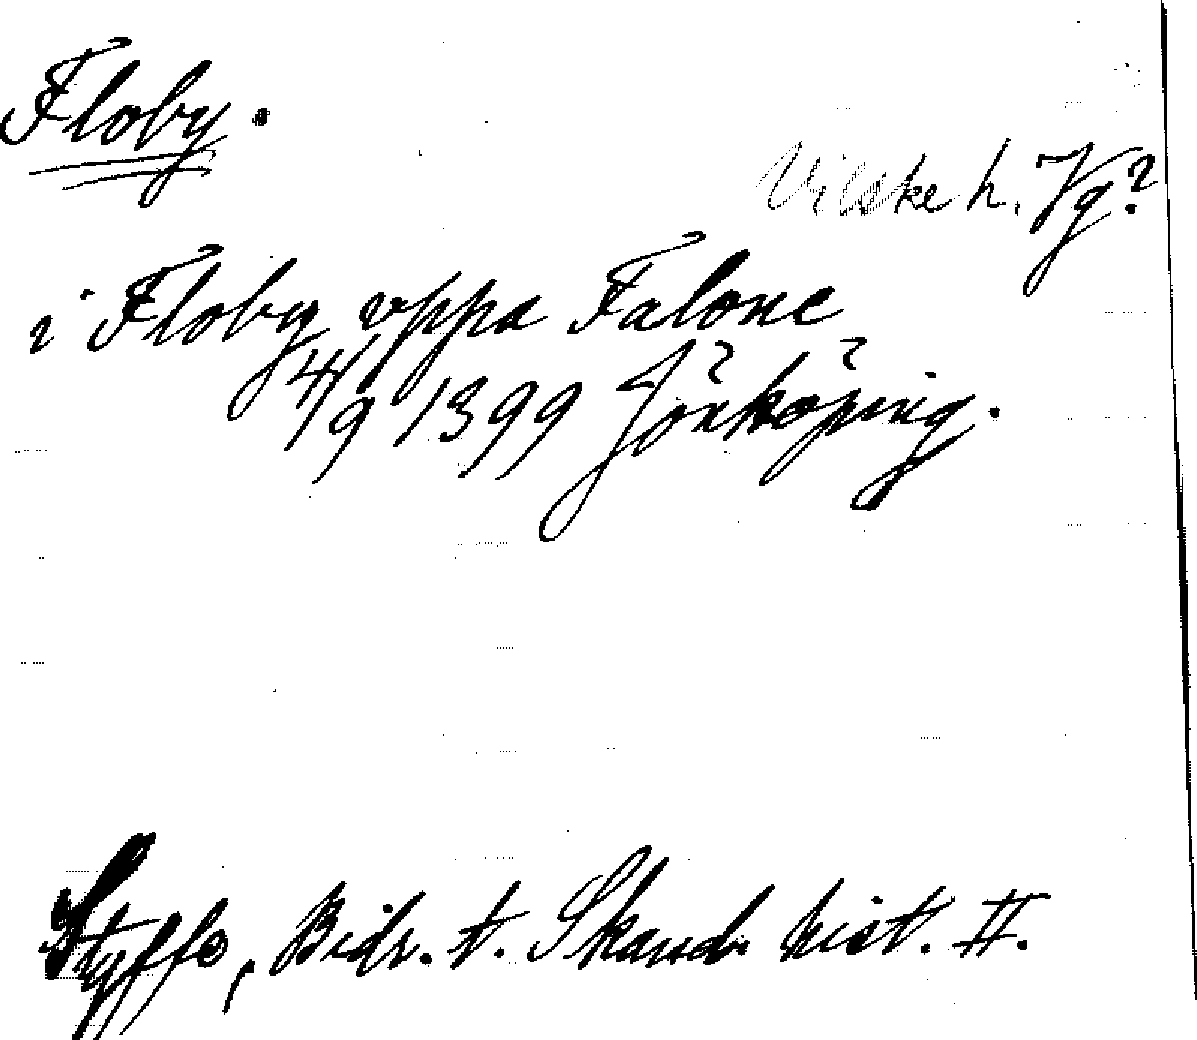 Floby.
Vilske h. Vg?
i Floby vppa Falone
4/9 1399 Jönköping.
Styffe, Bidr. t. Skand. hist. II.